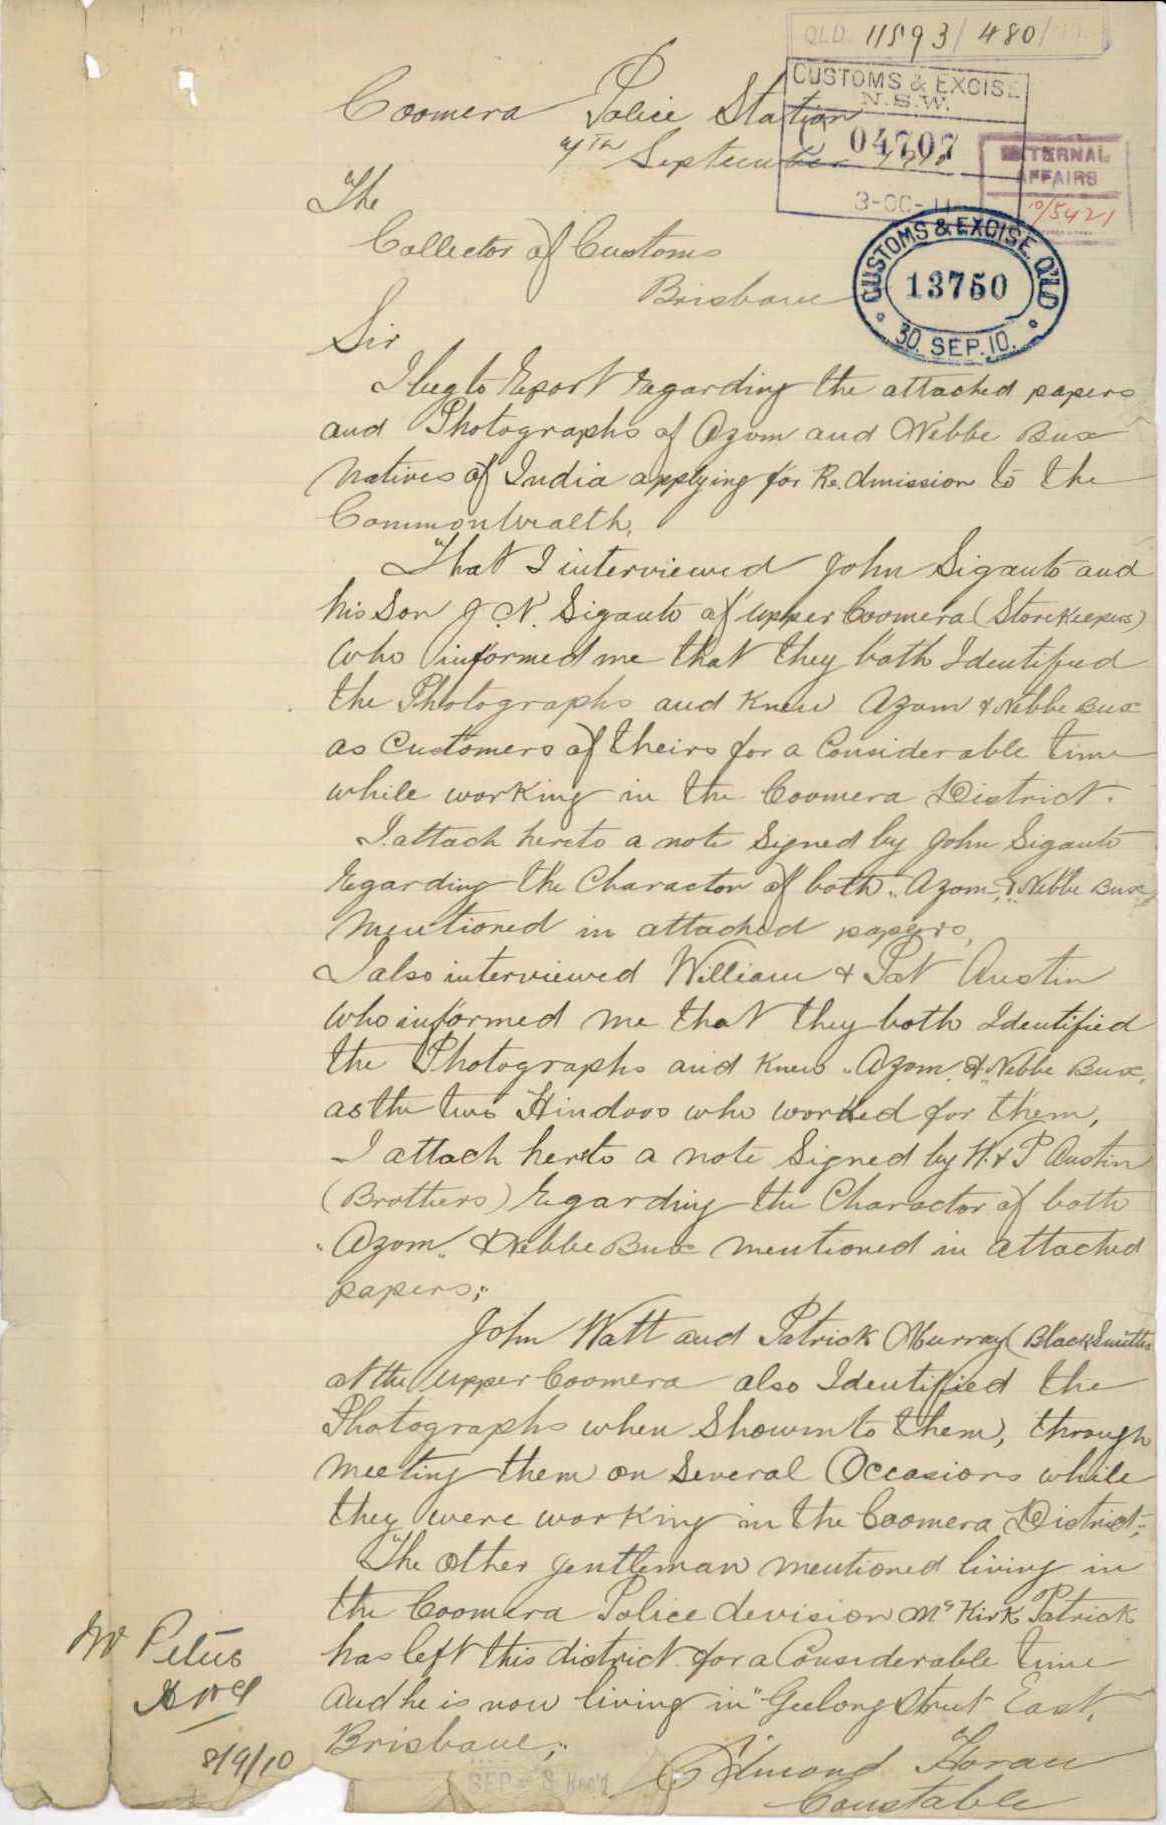 QLD. 11593/480/
CUSTOMS & EXCISE
N.S.W.
C 04707
3-OC-11
EXTERNAL
AFFAIRS
10/5421
CUSTOMS & EXCISE, Q'LD
13750
30. SEP. 10.
Coomera Police Station
7th September 1910
The
Collector of Customs
Brisbane
Sir
I beg to Report regarding the attached papers
and Photographs of Azom and Nebbe Bux
Natives of India applying for Re.dmission to the
CommonWealth,
That I interviewed John Siganto and
his Son J. N. Siganto of upper Coomera (StoreKeepers)
Who informed me that they both Identified
the Photographs and Knew Azom & Nebbe Bux
as Customers of theirs for a Considerable time
while working in the Coomera District.
I attach hereto a note Signed by John Siganto
Regarding the Charactor of both "Azom" & "Nebbe Bux"
Mentioned in attached papers,
I also interviewed William & Pat Austin
Who informed me that they both Identified
the Photographs and Knew "Azom" & "Nebbe Bux"
as the two Hindoos who worked for them,
I attach hereto a note Signed by W. & P Austin
(Brothers) Regarding the Charactor of both
"Azom" & Nebbe Bux mentioned in attached
papers;
John Watt and Patrick Murray (BlackSmiths
at the upper Coomera also Identified the
Photographs when Shown to them, through
Meeting them on Several Occasions while
they were working in the Coomera District;
The other gentleman mentioned living in
the Coomera Police devision Mr KirkPatrick
has left this district for a Considerable time
and he is now living in "Geelong Street East,
Brisbane;
Edmond Horan
Constable
Mr Peters
8/9/10
SEP - 8 Rec'd